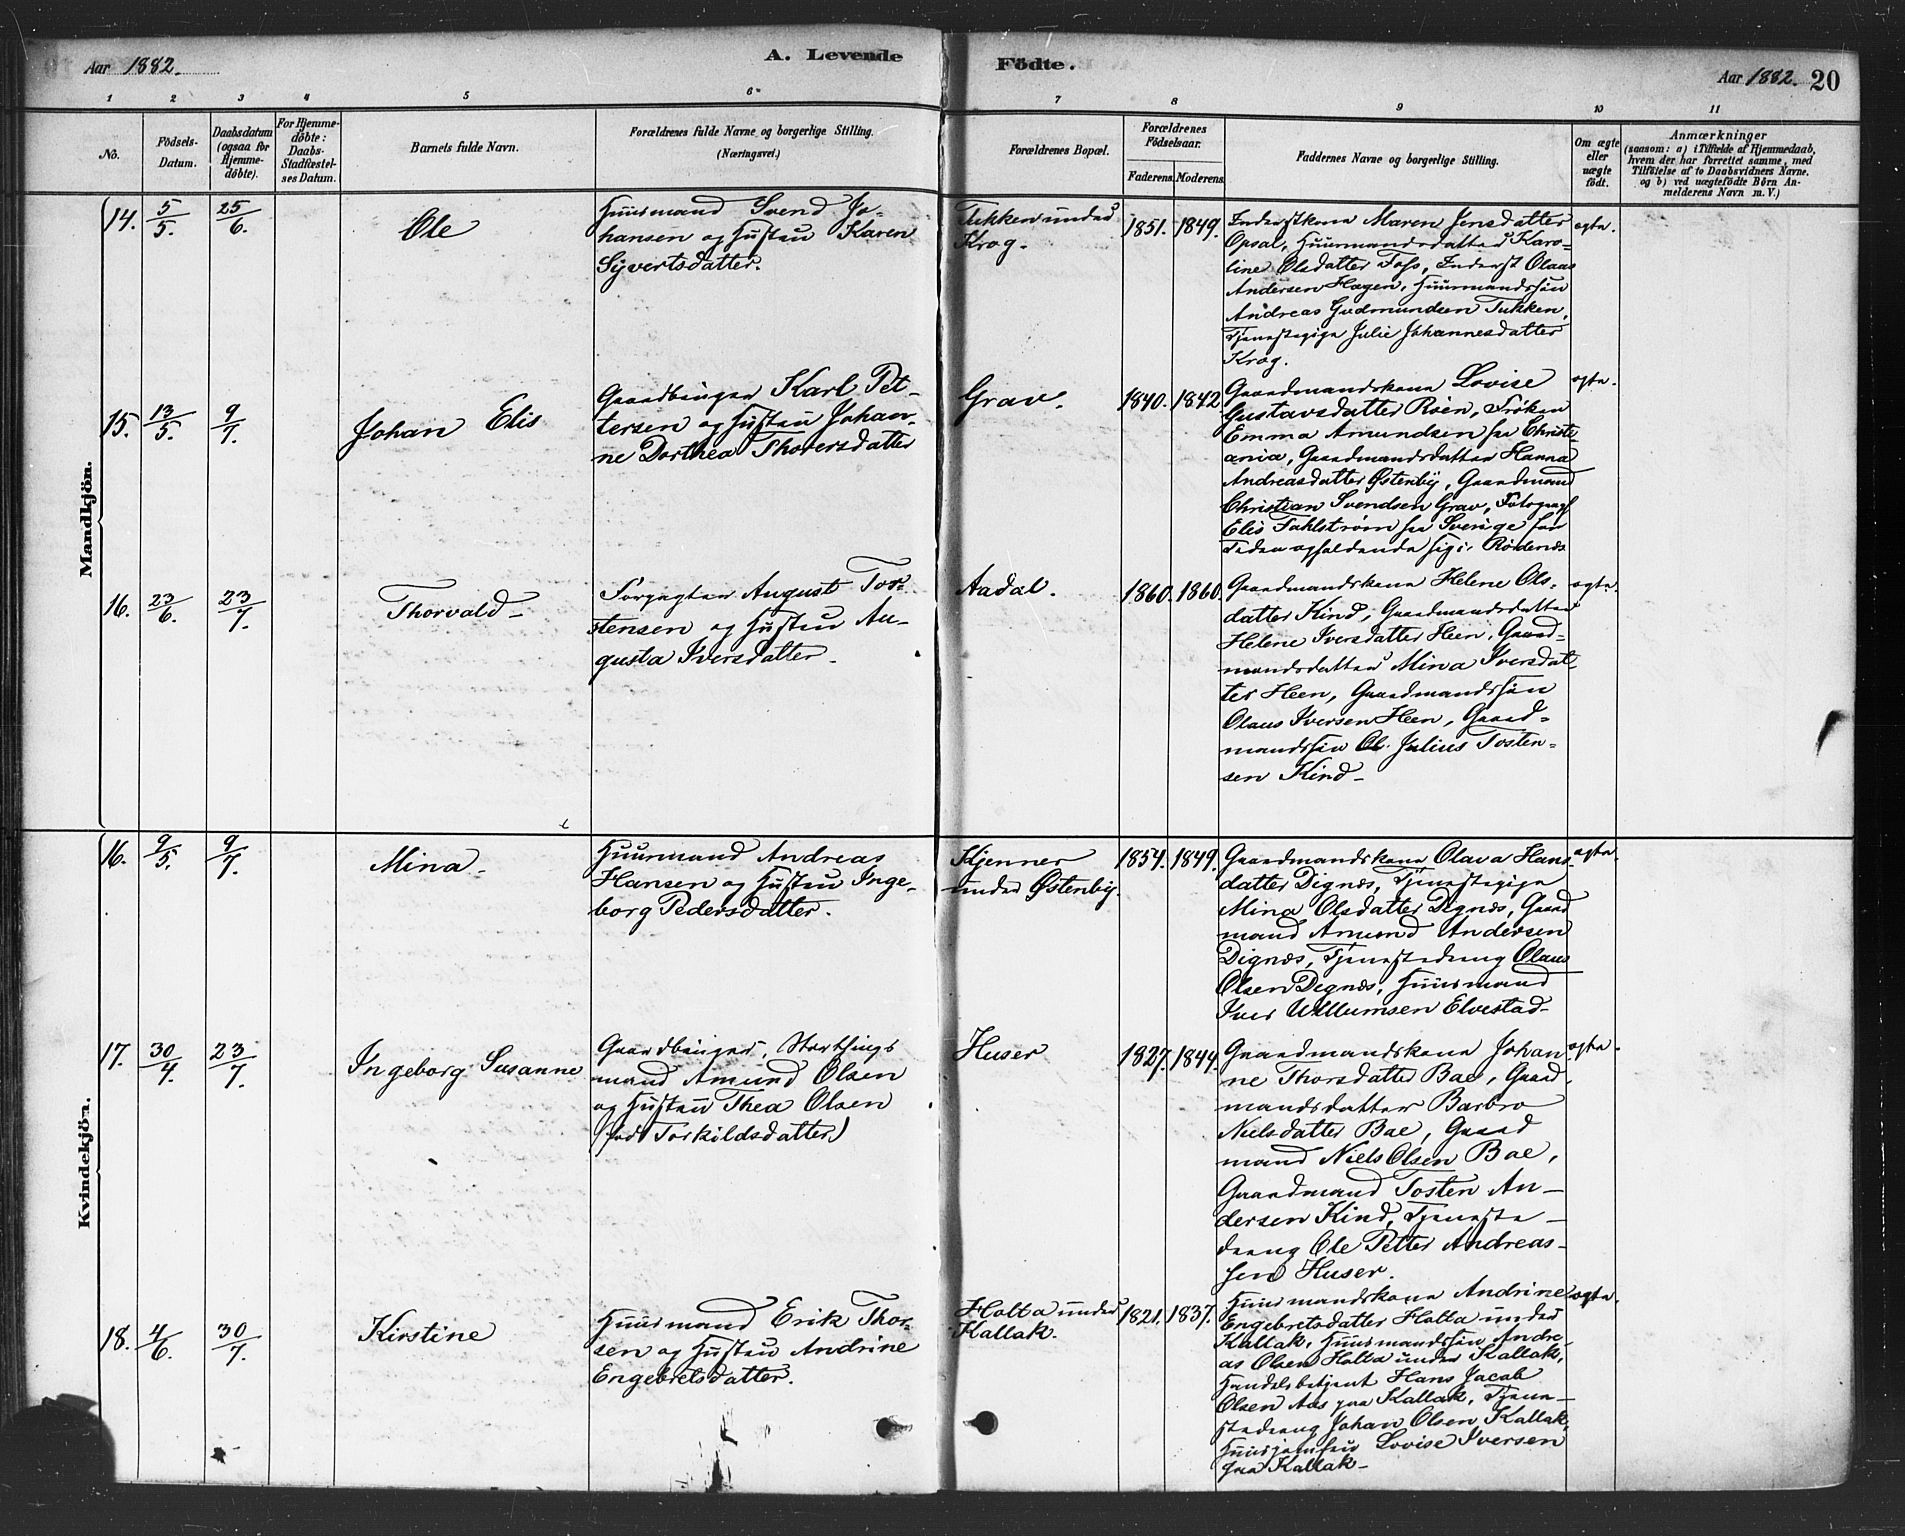 Aar 1882.
A. Levende
Födte.
Aar 1882. 20
1 2 3 4 5 6 7 8 9 10 11
No.
Födsels-
Datum.
Daabsdatum
(ogsaa for
Hjemme-
döbte).
For Hjemme-
döbte:
Daabs-
Stadfæstel-
ses Datum.
Barnets fulde Navn.
Forældrenes fulde Navne og borgerlige Stilling.
(Næringsvei.)
Forældrenes Bopæl.
Forældrenes
Födselsaar.
Faderens. Moderens.
Faddernes Navne og borgerlige Stilling.
Om ægte
eller
uægte
födt.
Anmærkninger
(saasom: a) i Tilfælde af Hjemmedaab,
hvem der har forrettet samme, med
Tilföielse af to Daabsvidners Navne.
og b) ved uægtefödte Börn An-
melderens Navn m. V.)
Mandkjön.
14. 5/5. 25/6. Ole
Huusmand Svend Jo-
hansen og Hustru Karen
Syvertsdatter.
Tukken under
Krog.
1851. 1849.
Inderstkone Maren Jensdatter
Opsal, Huusmandsdatter Karo-
line Olsdatter Foss, Inderst Olaus
Andersen Hagen, Huusmandssøn
Andreas Gudmundsen Tukken,
Tjenestepige Julie Johannesdatter
Krog.
ægte.
15. 13/5. 9/7. Johan Elis
Gaardbruger Karl Pet-
tersen og Hustru Johan-
ne Dorthea Thorersdatter
Grav.
1840. 1842.
Gaardmandskone Lovise
Gustavsdatter Röen, Frøken
Emma Amundsen fra Christi-
ania, Gaardmandsdatter Hanna
Andreasdatter Østenby, Gaardmand
Christian Svendsen Grav, Fotograf
Elis Fahlstrøm fra Sverige for
Tiden opholdende sig i Rødenes
ægte.
16. 23/6. 23/7. Thorvald
Forpagter August Tor-
stensen og Hustru Au-
gusta Iversdatter.
Aadal.
1860. 1860.
Gaardmandskone Helene Ols-
datter Kind, Gaardmandsdatter
Helene Iversdatter Heen, Gaard-
mandsdatter Mina Iversdat-
ter Heen, Gaardmandssøn
Olaus Iversen Heen, Gaard-
mandssøn Ol. Julius Tosten-
sen Kind
ægte.
Kvindekjön.
16. 9/5. 9/7. Mina
Huusmand Andreas
Hansen og Hustru Inge-
borg Pedersdatter.
Kjenner
under Østenby.
1854. 1849.
Gaardmandskone Olava Hans-
datter Dignæs, Tjenestepige
Mina Olsdatter Dignæs, Gaard
mand Amund Andersen
Dignæs, Tjenestedreng Olaus
Olsen Dignæs, Huusmand
Iver Willumsen Elvestad
ægte.
17. 30/4. 23/7. Ingeborg Susanne
Gaardbruger, Storthings
mand Amund Olsen
og Hustru Thea Olsen
(fød Torkildsdatter)
Huser
1827. 1844.
Gaardmandskone Johan
ne Thorsdatter Bae, Gaard
mandsdatter Barbro
Nielsdatter Bae, Gaard
mand Niels Olsen Bae,
Gaardmand Tosten An-
dersen Kind, Tjeneste-
dreng Ole Petter Andreas-
sen Huser.
ægte.
18. 4/6. 30/7. Kirstine
Huusmand Erik Thor-
sen og Hustru Andrine
Engebretsdatter.
Holta under
Kallak.
1821. 1837.
Huusmandskone Andrine
Engebretsdatter Holta under
Kallak, Huusmandssøn Andre-
as Olsen Holta under Kallak,
Handelsbetjent Hans Jacob
Olsen Aas paa Kallak, Tjene-
stedreng Johan Olsen Kallak,
Huusjomfru Lovise Iversen
paa Kallak
ægte.